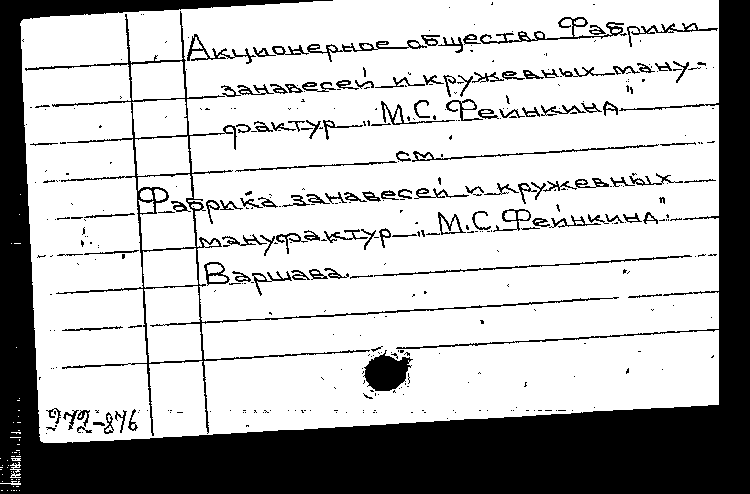 Акционерное общество Фабрики
занавесей и кружевных ману-
фактур „М.С. Фейнкинд"
см.
Фабрика занавесей и кружевных
мануфактур „М.С. Фейнкинд".
Варшава.
972-876